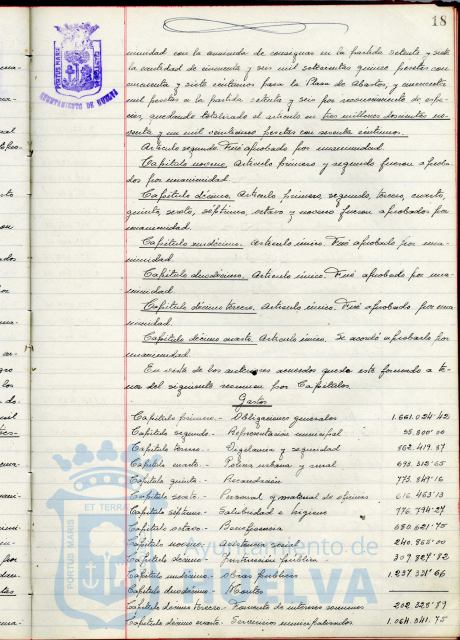 18
PORTUS MARIS
AYUNTAMIENTO DE HUELVA
nimidad con la enmienda de consignar en la partida setenta y siete
la cantidad de cincuenta y seis mil setecientas quince pesetas con
cincuenta y siete céntimos para la Plaza de Abastos, y
mil pesetas a la partida setenta y seis por reconocimiento de espe-
cies, quedando totalizado el artículo en tres millones doscientas no-
venta y un mil veintinueve pesetas con sesenta céntimos.
Artículo segundo. Fué aprobado por unanimidad.
Capítulo noveno. Artículo primero y segundo fueron aproba-
dos por unanimidad.
Capítulo décimo. Artículo, primero, segundo, tercero, cuarto,
quinto, sexto, séptimo, octavo y noveno fueron aprobados por
unanimidad.
Capítulo undécimo. Artículo único. Fué aprobado por una-
nimidad.
Capítulo duodécimo. Artículo único. Fué aprobado por una-
nimidad.
Capítulo décimo tercero. Artículo único. Fué aprobado por una-
nimidad.
Capítulo décimo cuarto. Artículo único. Se acordó aprobarlo por
unanimidad.
En vista de los anteriores acuerdos queda este formado a te-
nor del siguiente resumen por Capítulos.
Gastos
Capítulo primero.- Obligaciones generales 1.661.024'42
Capítulo segundo.- Representación municipal 95.800'00
Capítulo tercero.- Vigilancia y seguridad 862.419.37
Capítulo cuarto.- Policía urbana y rural 693.312'65
Capítulo quinto.- Recaudación 773.849'16
Capítulo sexto.- Personal y material de oficinas 616.463'13
Capítulo séptimo.- Salubridad e higiene 776.794'27
Capítulo octavo.- Beneficencia 680.621'75
Capítulo noveno.- Asistencia social 240.865'00
Capítulo décimo.- Instrucción pública 307.827'82
Capítulo undécimo.- Obras públicas 1.237.321'66
Capítulo duodécimo.- Montes
Capítulo décimo tercero.- Fomento de intereses comunes 202.328'89
Capítulo décimo cuarto.- Servicios municipalizados 1.064.341.75
PORTUS MARIS ET TERRAE
Ayuntamiento de
HUELVA